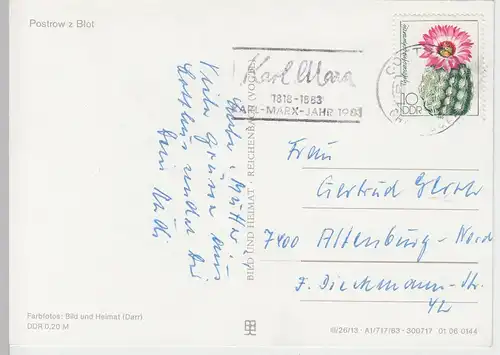 Postrow z Błot
Karl Marx
1818-1883
KARL-MARX-JAHR 1983
10
DDR
Liebe Mutter!
Viele Grüße aus
Cottbus sendet Dir
Dein Rudi
BILD UND HEIMAT · REICHENBACH (VOGTL)
Frau
Gertrud
7400 Altenburg-Nord
F. Dieckmann-Str.
42
Farbfotos: Bild und Heimat (Darr)
DDR 0,20 M
III/26/13 · A1/717/83 · 300717 01 06 0144